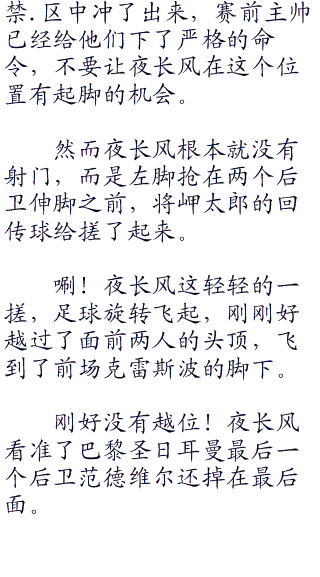 禁.区中冲了出来，赛前主帅
已经给他们下了严格的命
令，不要让夜长风在这个位
置有起脚的机会。
然而夜长风根本就没有
射门，而是左脚抢在两个后
卫伸脚之前，将岬太郎的回
传球给搓了起来。
唰！夜长风这轻轻的一
搓，足球旋转飞起，刚刚好
越过了面前两人的头顶，飞
到了前场克雷斯波的脚下。
刚好没有越位！夜长风
看准了巴黎圣日耳曼最后一
个后卫范德维尔还掉在最后
面。